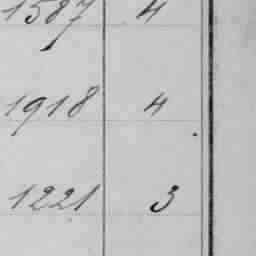 1587 4
1918 4
1221 3